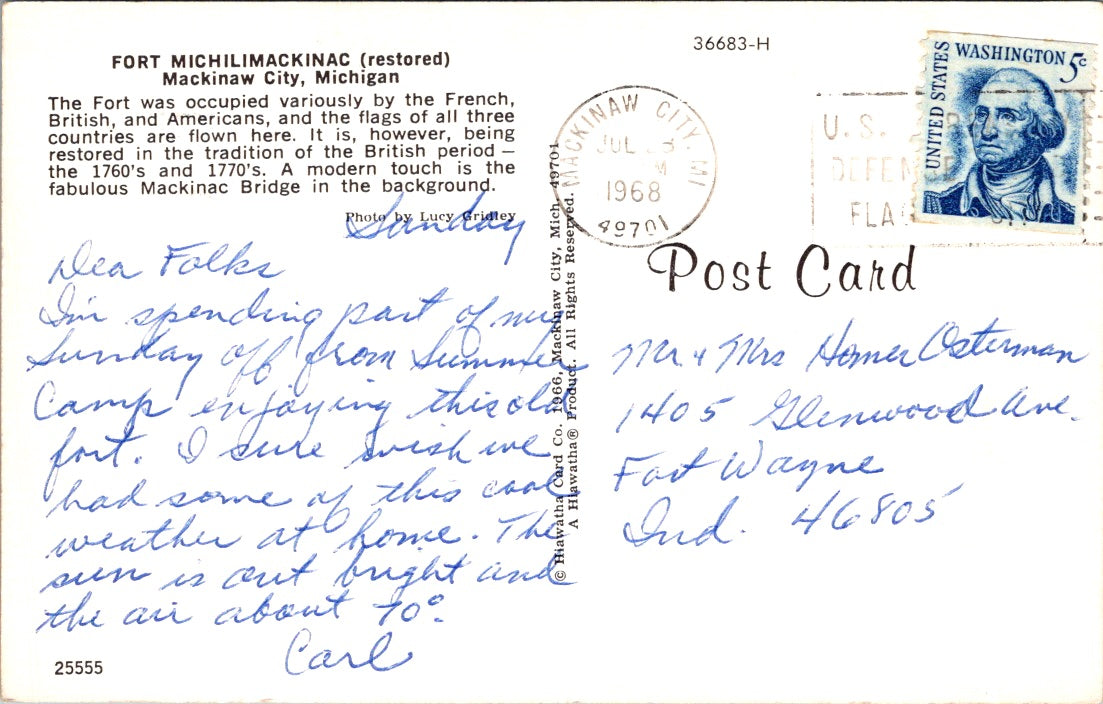 36683-H
FORT MICHILIMACKINAC (restored)
Mackinaw City, Michigan
The Fort was occupied variously by the French,
British, and Americans, and the flags of all three
countries are flown here. It is, however, being
restored in the tradition of the British period —
the 1760's and 1770's. A modern touch is the
fabulous Mackinac Bridge in the background.
Photo by Lucy Gridley
UNITED STATES
WASHINGTON 5c
MACKINAW CITY, MI
JUL
M
1968
49701
U.S.
DEFEN
FLA
Post Card
© Hiawatha Card Co. 1966, Mackinaw City, Mich. 49701
A Hiawatha® Product. All Rights Reserved.
Sunday
Dea Folks
I'm spending part of my
Sunday off from Summer
Camp enjoying this old
fort. I sure wish we
had some of this cool
weather at home. The
sun is out bright and
the air about 70°.
Carl
Mr & Mrs Homer Osterman
1405 Glenwood Ave.
Fort Wayne
Ind. 46805
25555